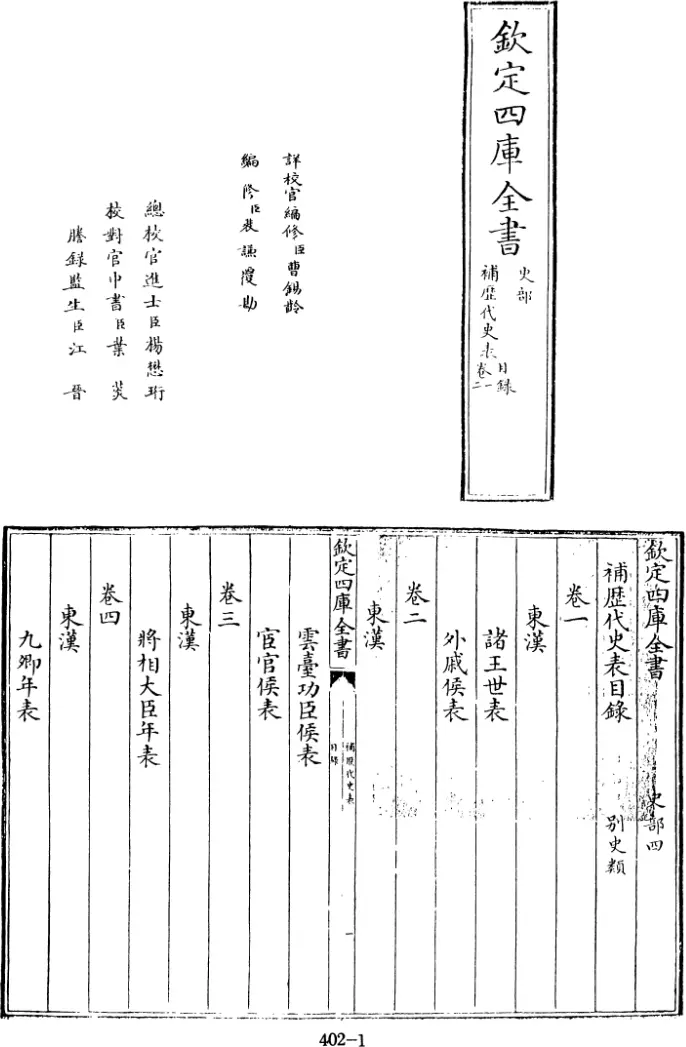 欽定四庫全書
史部
補歷代史表
目録
卷一
二
詳校官編修臣曹錫齡
編修臣裴謙覆勘
總校官進士臣楊懋珩
校對官中書臣葉菼
謄録監生臣江晉
欽定四庫全書
史部四
補歷代史表目錄
別史類
卷一
東漢
諸王世表
外戚侯表
卷二
東漢
欽定四庫全書
補歷代史表
目録
一
雲臺功臣侯表
宦官侯表
卷三
東漢
將相大臣年表
卷四
東漢
九卿年表
402-1